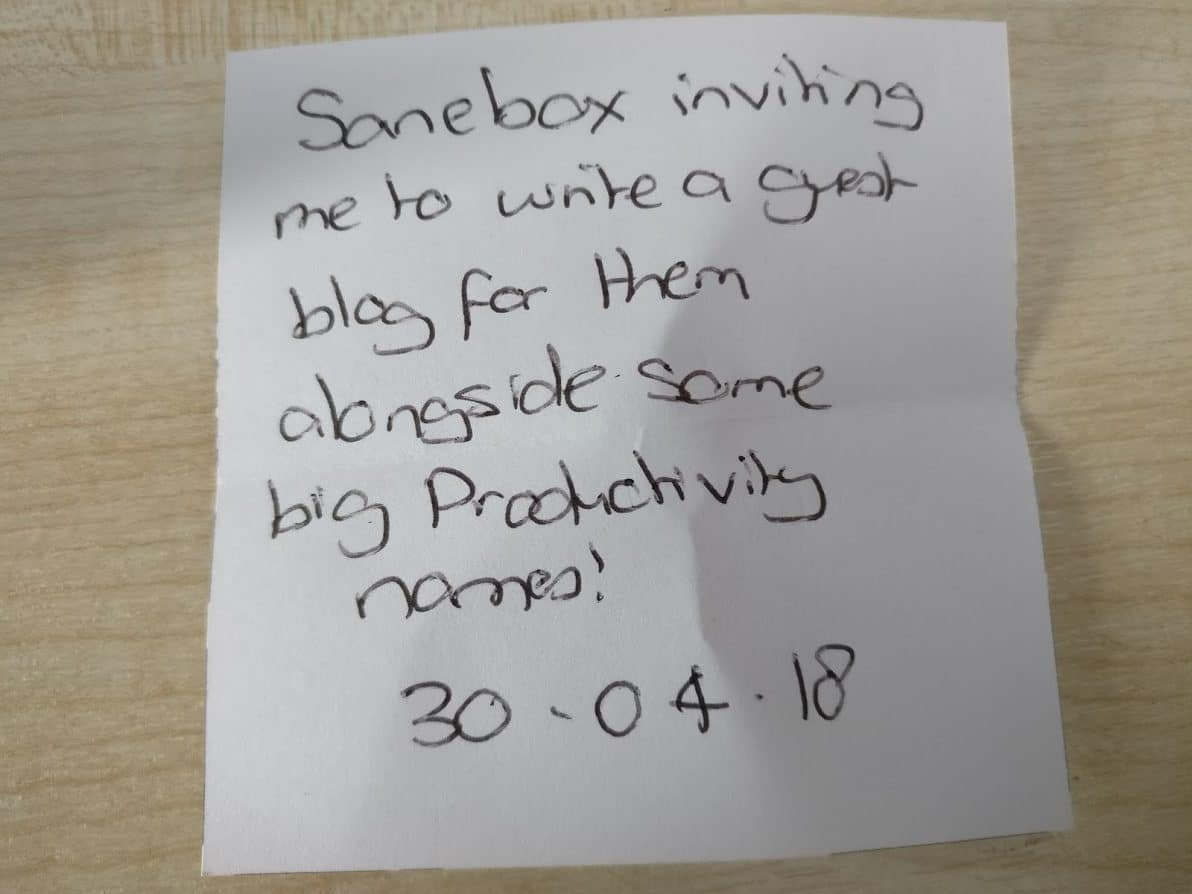 Sanebox inviting
me to write a guest
blog for them
alongside some
big Productivity
names!
30.04.18